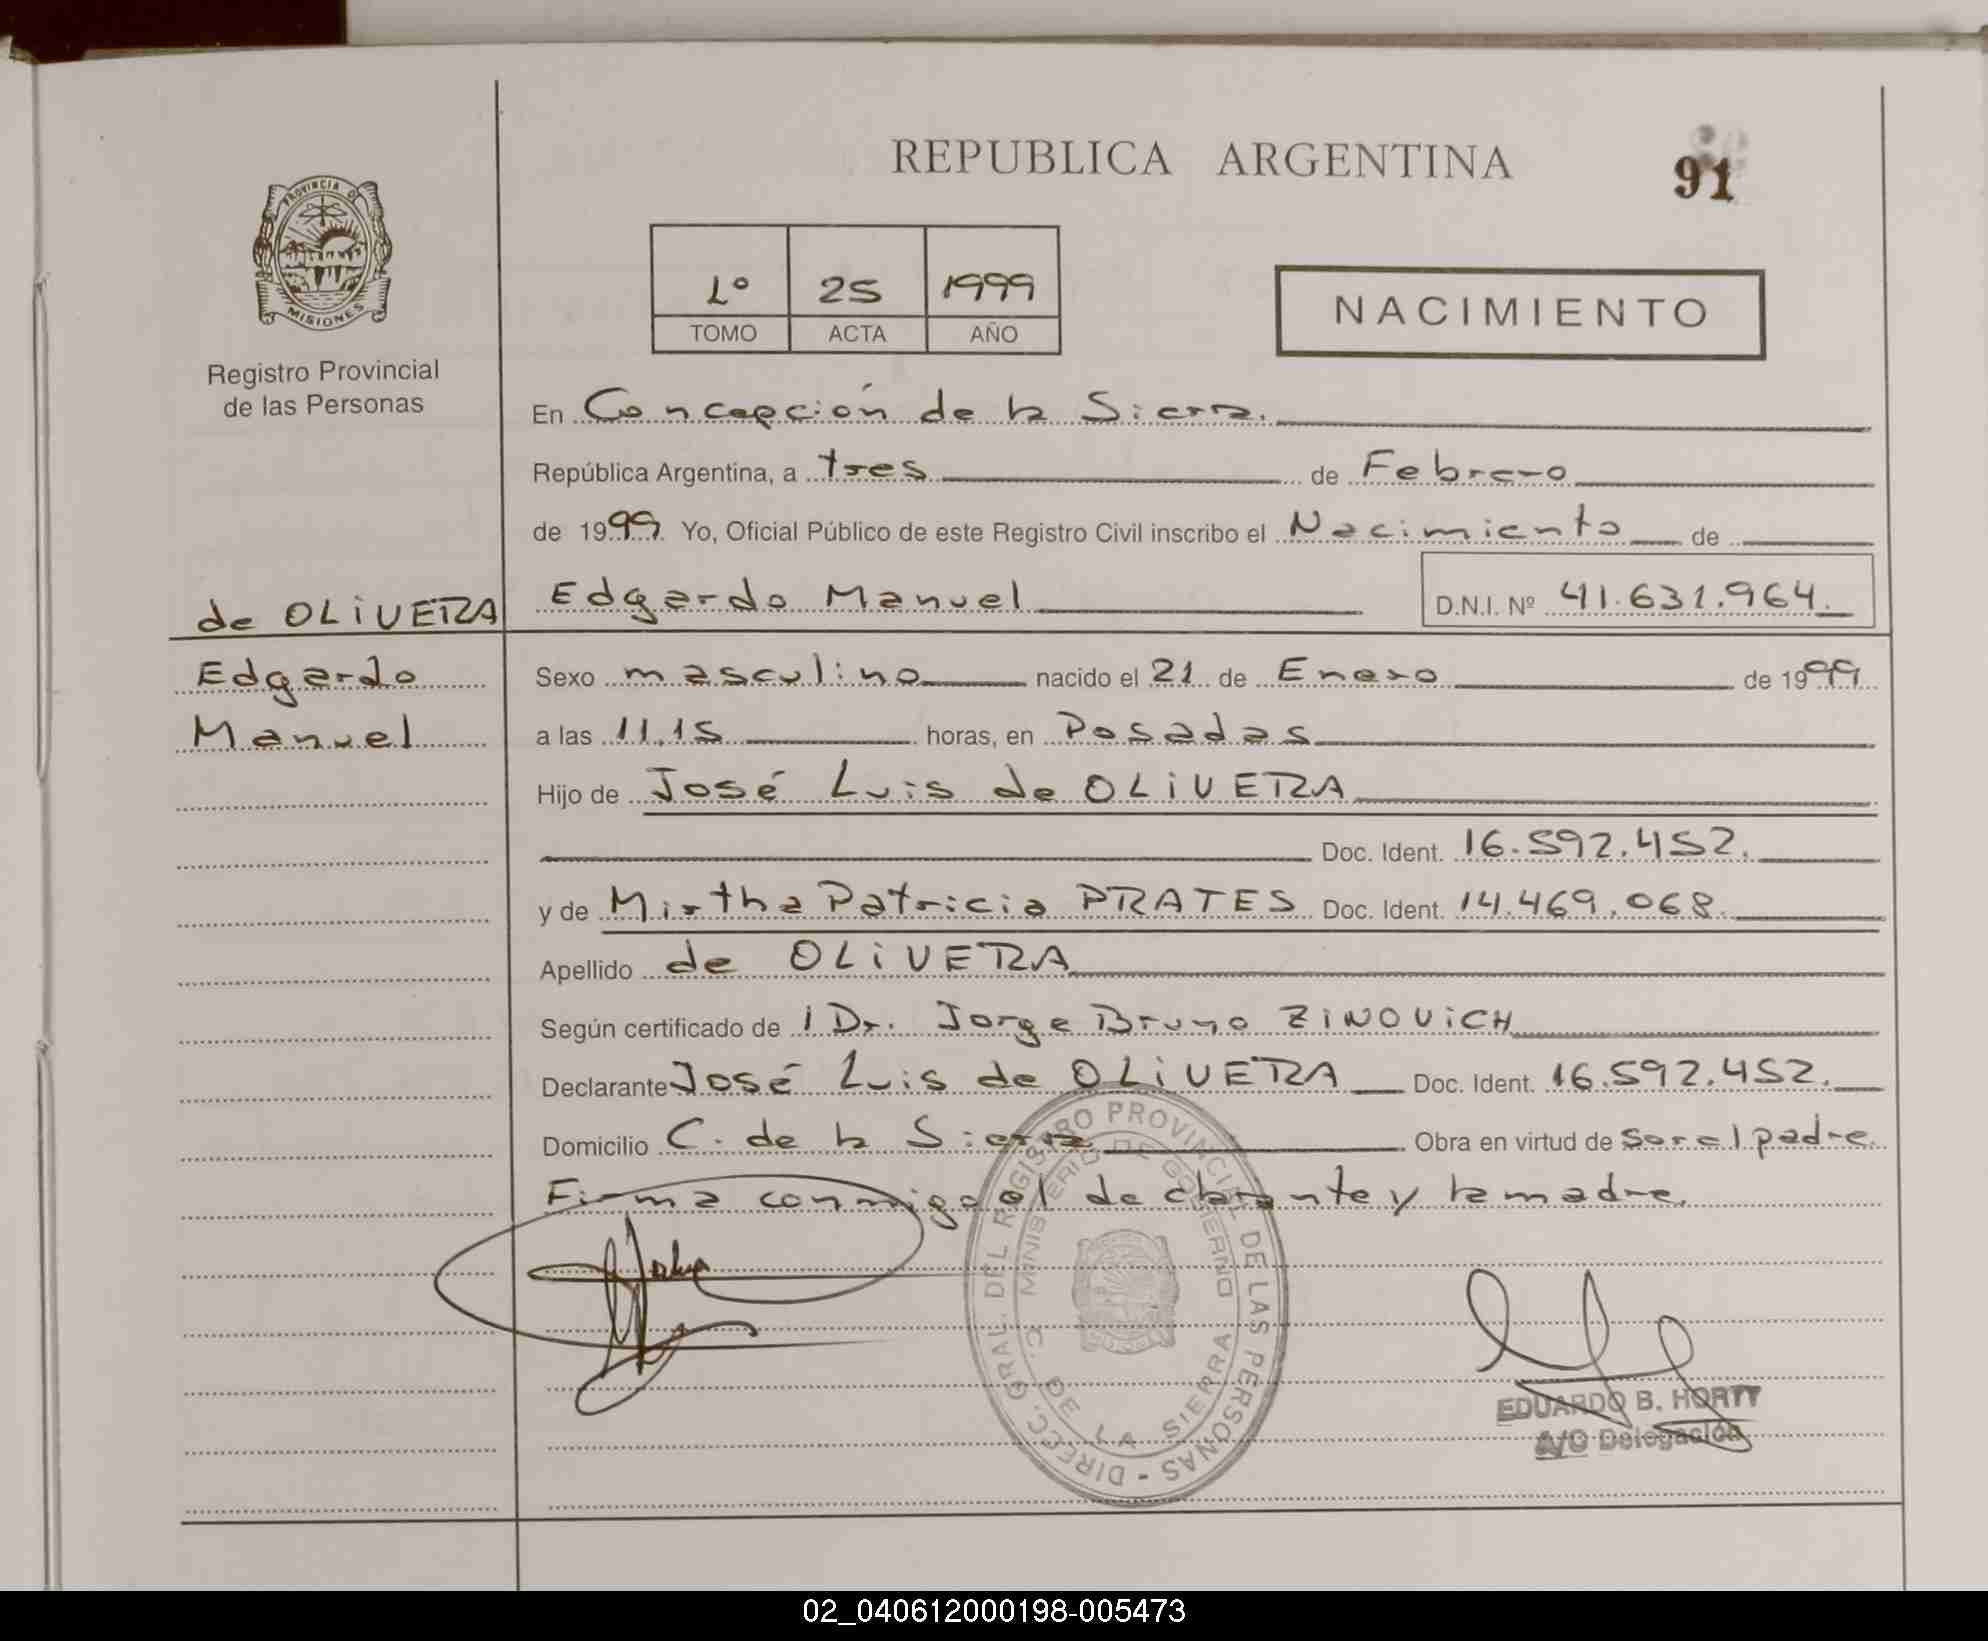 REPUBLICA ARGENTINA
91
PROVINCIA D MISIONES
Registro Provincial
de las Personas
1º 25 1999
TOMO ACTA AÑO
NACIMIENTO
En Concepción de la Sierra.
República Argentina, a tres de Febrero
de 1999 Yo, Oficial Público de este Registro Civil inscribo el Nacimiento de
de OLIVERA Edgardo Manuel D.N.I. Nº 41.631.964.
Edgardo
Manuel
Sexo masculino nacido el 21 de Enero de 1999
a las 11,15 horas, en Posadas
Hijo de José Luis de OLIVERA
Doc. Ident. 16.592.452.
y de Mirtha Patricia PRATES Doc. Ident. 14.469.068.
Apellido de OLIVERA
Según certificado de l Dr. Jorge Bruno ZINOVICH
Declarante José Luis de OLIVERA Doc. Ident. 16.592.452.
Domicilio C. de la Sierra Obra en virtud de ser el padre.
Firma conmigo el declarante y la madre.
DIRECC. GRAL. DEL REGISTRO PROVINCIAL DE LAS PERSONAS -
MINISTERIO DE GOBIERNO
C. DE LA SIERRA
EDUARDO B. HORTY
A/C Delegación
02_040612000198-005473